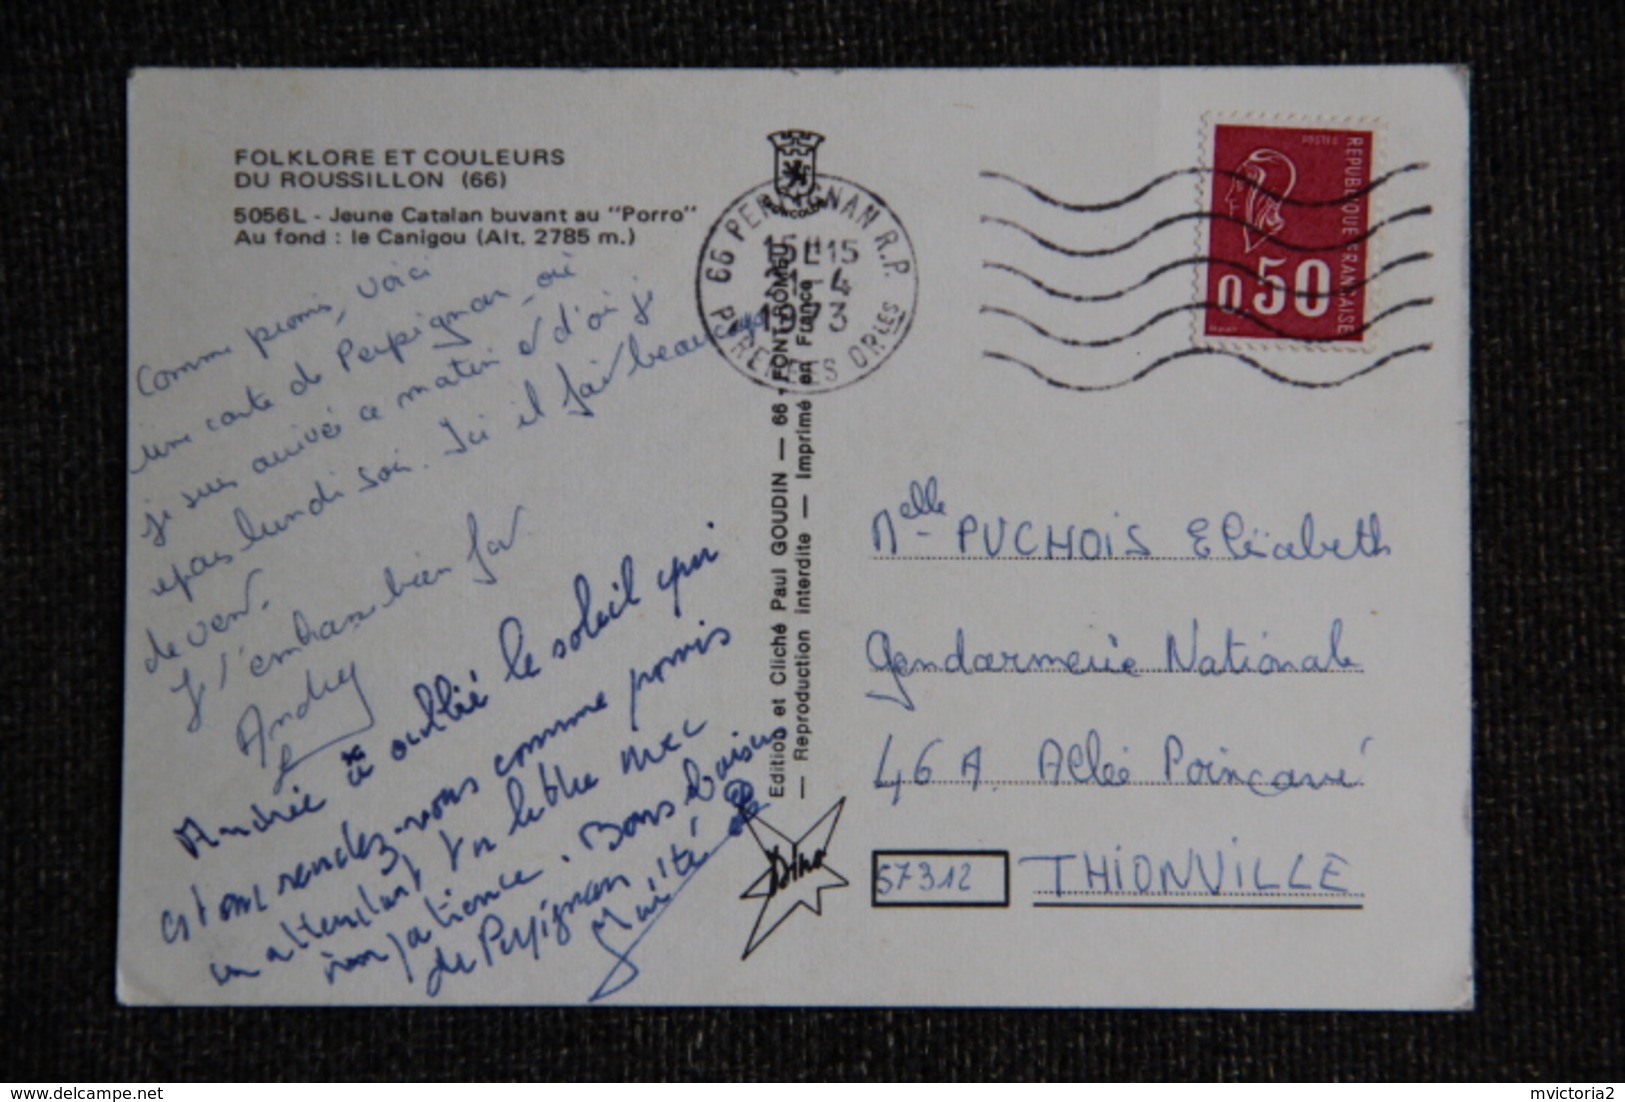 FOLKLORE ET COULEURS
DU ROUSSILLON (66)
5056L - Jeune Catalan buvant au "Porro"
Au fond : le Canigou (Alt. 2785 m.)
Comme promis, voici
une carte de Perpignan, où
je suis arrivée ce matin et d'où je
repars lundi soir. Ici il fait beau
de vent.
Je t'embrasse bien fort
Andrée
Andrée a oublié le soleil qui
est au rendez-vous comme promis
en attendant ta lettre avec
impatience. Bons baisers
de Perpignan
Maïté
Edition et Cliché Paul GOUDIN — 66 - FONT-ROMEU
— Reproduction Interdite — Imprimé en France
66 PERPIGNAN R.P.
15H15
1-4
1973
PYRENEES ORLES
REPUBLIQUE FRANCAISE
0,50
Melle PUCHOIS Elisabeth
Gendarmerie Nationale
46A Allée Poincaré
57312 THIONVILLE
Dino
mvictoria2